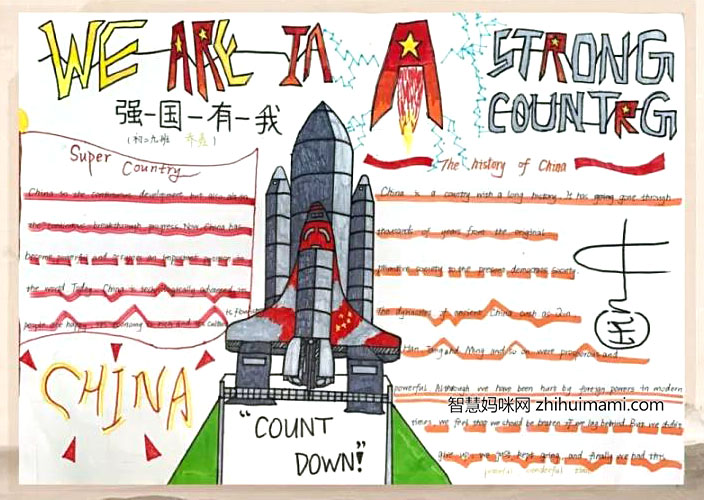 WE ARE IN A STRONG COUNTRG
强-国-有-我
(初二九班
Super Country
China in the continuous development but also always
the continuous breakthrough progress. Now China has
become powerful and occupies an important position in
the world Today. China is technologically advanced, its
people are happy, its economy is rich and its culture
CHINA
"COUNT
DOWN!"
The history of China
China is a country with a long history. It has going gone through
thousands of years from the original
primitive society to the present democratic society.
The dynasties of ancient China such as Qin
Han Tang and Ming and so on were prosperous and
powerful. Although we have been hurt by foreign powers in modern
times, we feel that we should be beaten if we lag behind. But we didn't
give up, we just kept going, and finally we had this
powerful wonderful
中
智慧妈咪网 zhihuimami.com